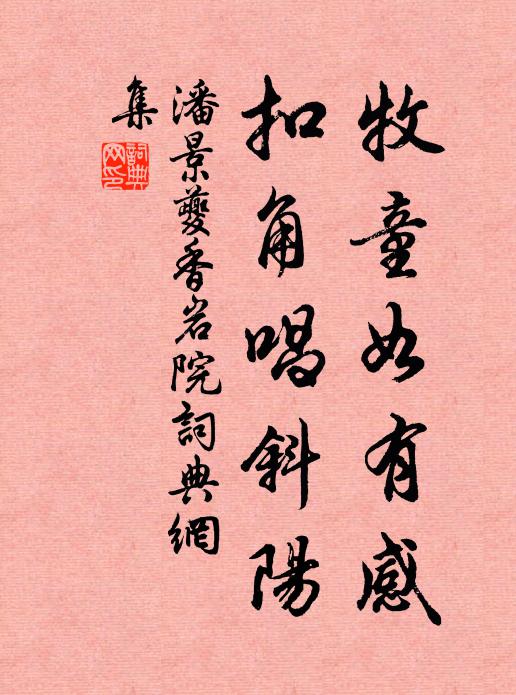 牧童如有感
扣角唱斜陽
潘景夔香岩院詞典網
集
詞典
网印